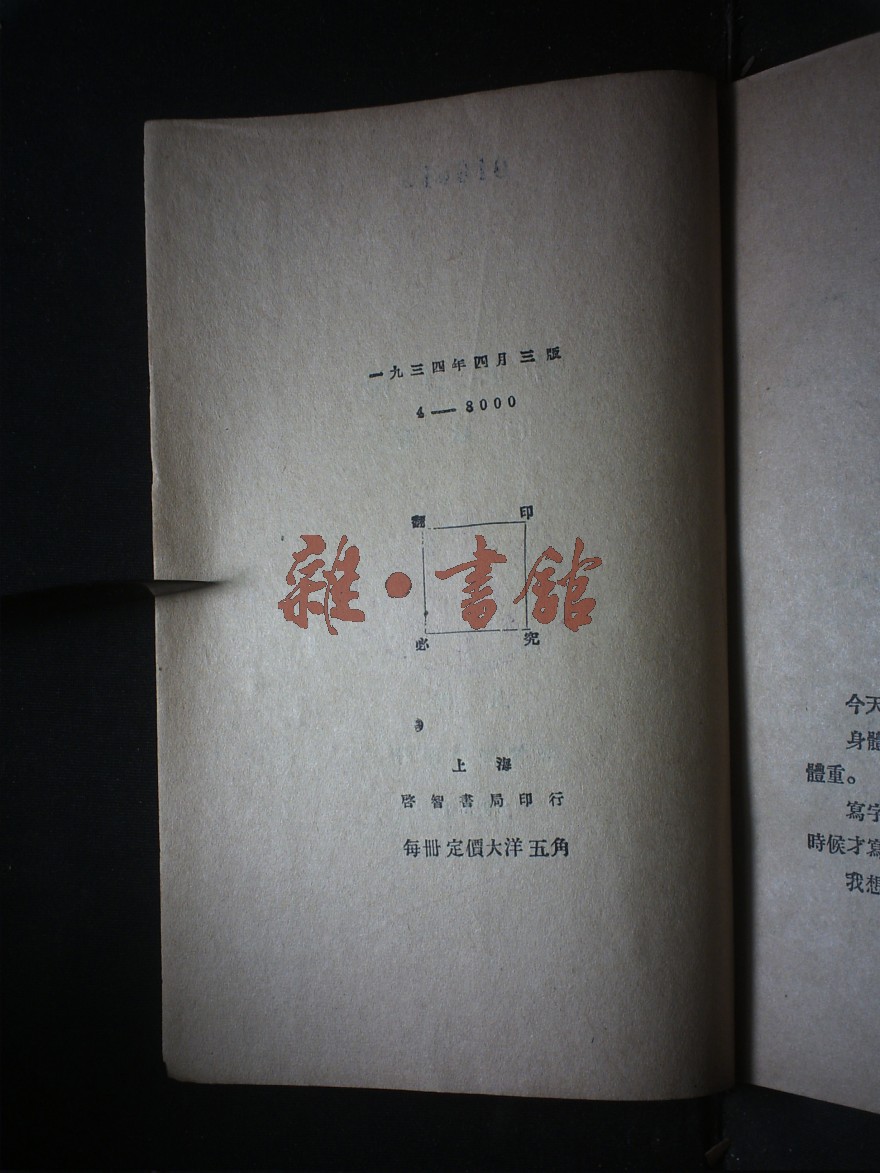 一九三四年四月三版
4—8000
翻印
雜·書館
必究
上海
啓智書局印行
每冊定價大洋五角
今天
身體
體重。
寫字
時候才寫
我想